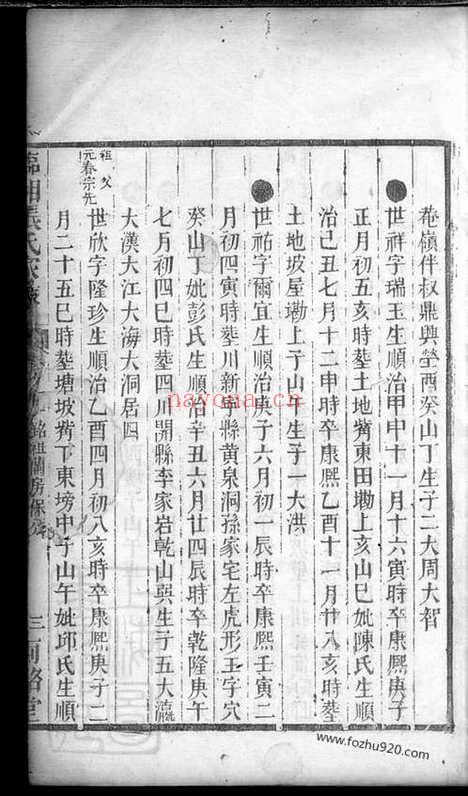 菴嶺伴叔鼎興塋酉癸山丁生子二大周大智
世祥字瑞玉生順治甲申十一月十六寅時卒康熙庚子
正月初五亥時塟土地觜東田塅上亥山巳妣陳氏生順
治己丑七月十二申時卒康熙乙酉十一月廿八亥時塟
土地坡屋塅上子山午生子一大洪
世祐字爾宜生順治庚子六月初一辰時卒康熙壬寅二
月初四寅時塟川新甯縣黃泉洞孫家宅左虎形王字穴
癸山丁妣彭氏生順治辛丑六月廿四辰時卒乾隆庚午
七月初四巳時塟四川開縣李家岩乾山巽生子五大瀛
大漢大江大海大洞居四
祖父
元春宗先
世欣字隆珍生順治乙酉四月初八亥時卒康熙庚子二
月二十五巳時塟塘坡觜丁東塝中子山午妣邱氏生順
臨湘張氏家
銘祖蘭房保
nayona.cn
www.fozhu920.com